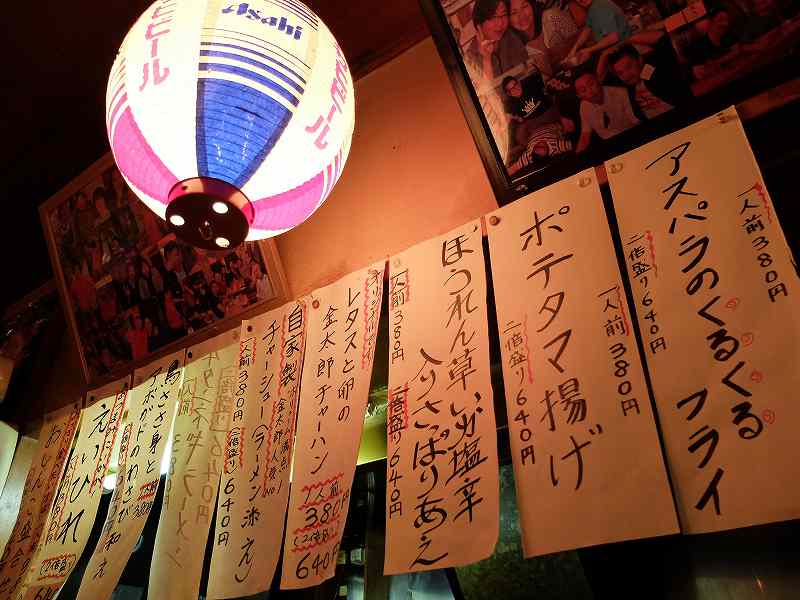 Asahi
ビール
ビール
アスパラのくるくる
フライ
一人前380円
二倍盛り640円
ポテタマ揚げ
一人前380円
二倍盛り640円
ほうれん草いか塩辛
入りさっぱりあえ
一人前380円
二倍盛り640円
レタスと卵の
金太郎チャーハン
一人前
380円
(2倍盛)
640円
自家製
チャーシュー(ラーメン添え)
金太郎人気NO
一人前380円
二倍盛り640円
ネギラーメン
一人前380円
640円
鳥ささ身と
アボガドのわさび
和え
えいひれ